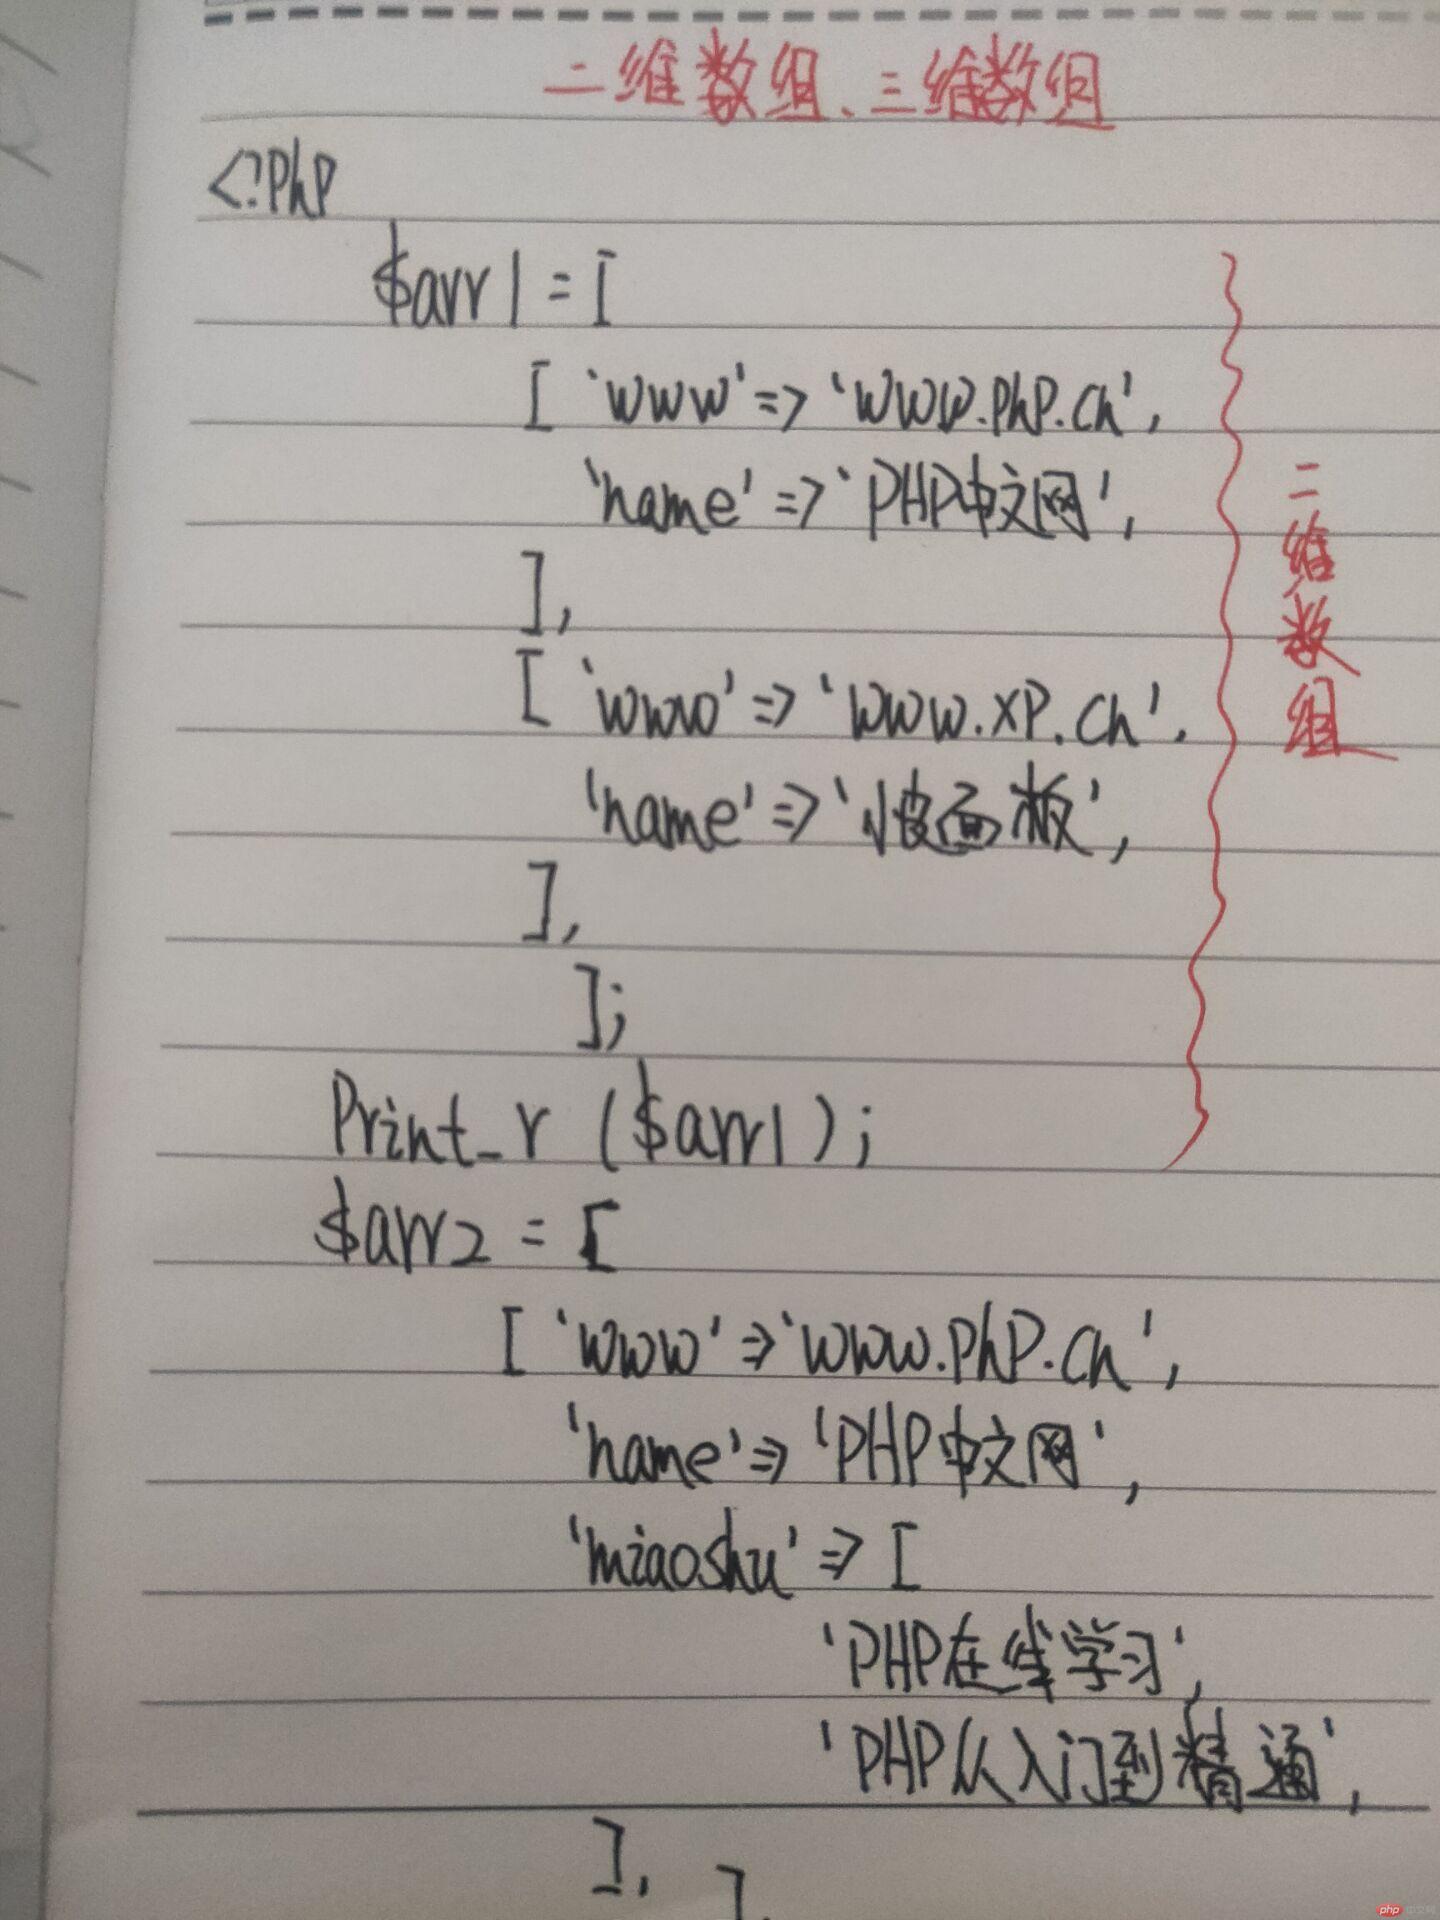 二维数组、三维数组
<?php
$arr1 = [
[ 'www' => 'www.php.cn',
'name' => 'PHP中文网',
],
[ 'www' => 'www.xp.cn',
'name' => '小皮面板',
],
];
Print_r ($arr1);
二维数组
$arr2 = [
[ 'www' => 'www.php.cn',
'name' => 'PHP中文网',
'miaoshu' => [
'PHP在线学习',
'PHP从入门到精通',
],
],
php 中文网